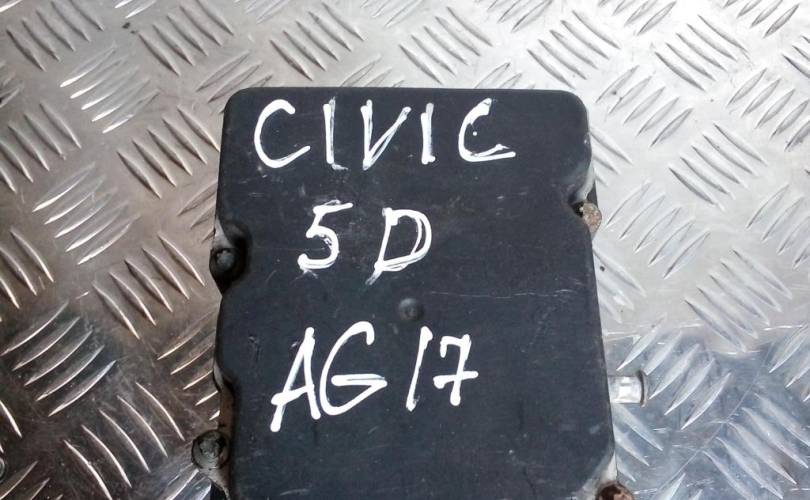 CIVIC
5D
AG17